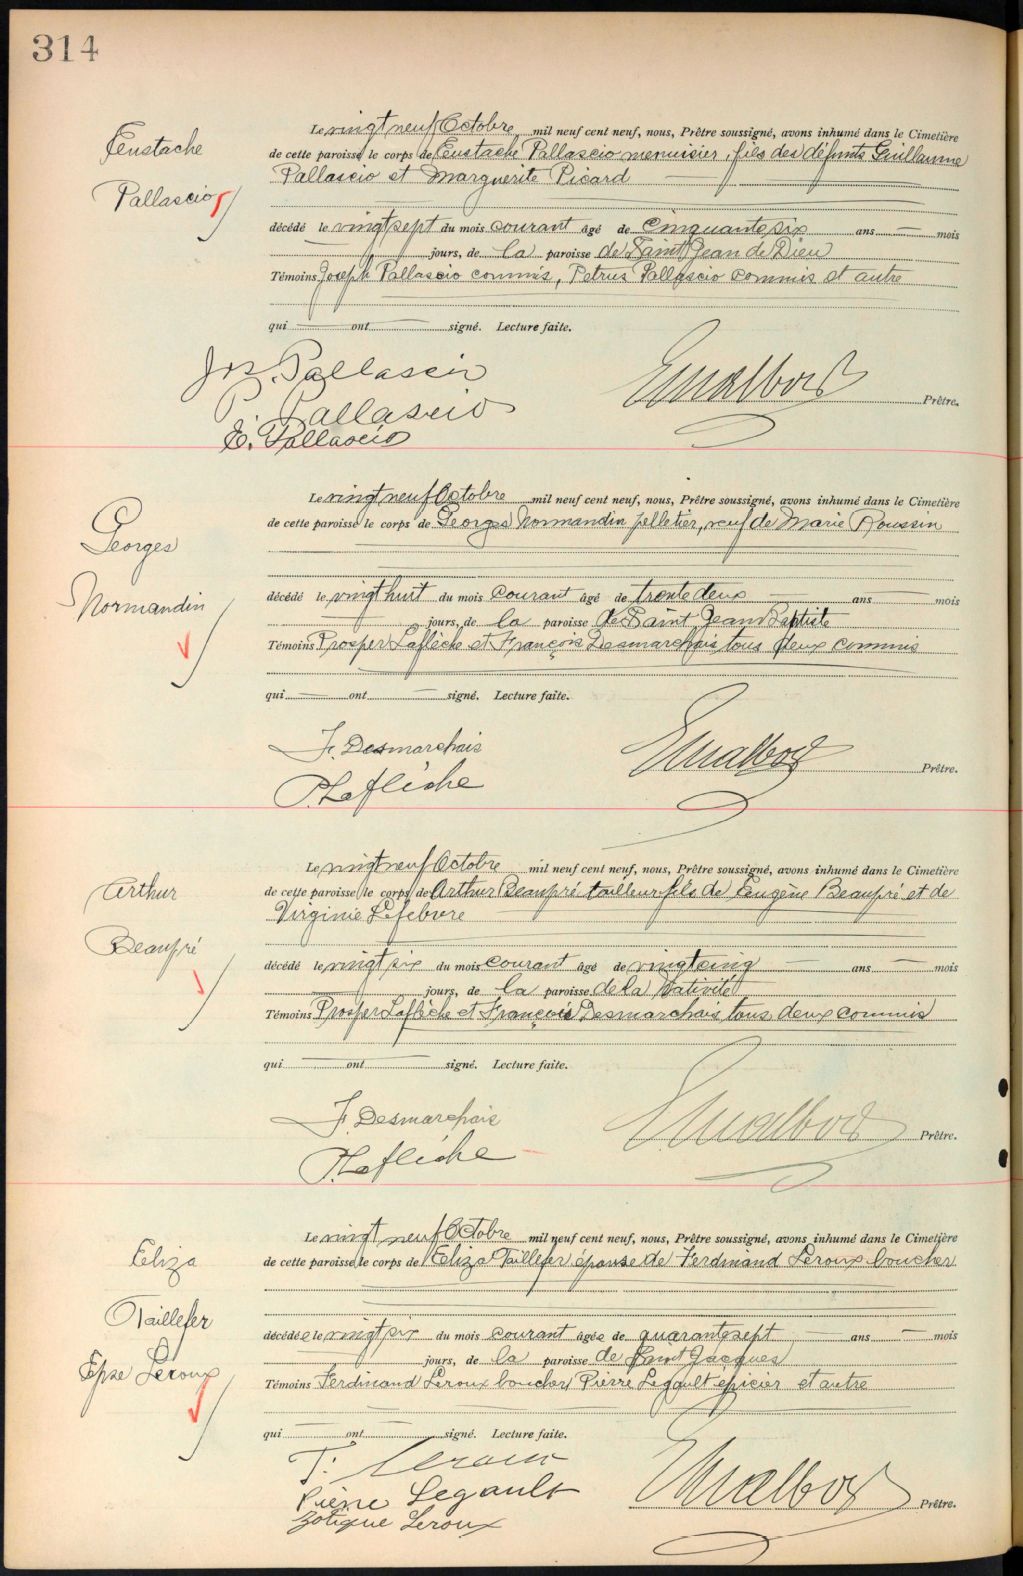 314
Eustache
Pallascio
Le vingt neuf Octobre mil neuf cent neuf, nous, Prêtre soussigné, avons inhumé dans le Cimetière
de cette paroisse le corps de Eustache Pallascio menuisier, fils des défunts Guillaume
Pallascio et Marguerite Picard
décédé le vingt sept du mois courant âgé de cinquante six ans — mois
jours, de la paroisse de Saint Jean de Dieu
Témoins Joseph Pallascio commis, Petrus Pallascio commis et autre
qui — ont — signé. Lecture faite.
Jos. Pallascio
P. Pallascio
E. Pallascio
Prêtre.
Georges
Normandin
Le vingt neuf Octobre mil neuf cent neuf, nous, Prêtre soussigné, avons inhumé dans le Cimetière
de cette paroisse le corps de Georges Normandin pelletier, veuf de Marie Roussin
décédé le vingt huit du mois courant âgé de trente deux — ans — mois
— jours, de la paroisse de Saint Jean Baptiste
Témoins Prosper Laflèche et François Desmarchais tous deux commis
qui — ont — signé. Lecture faite.
F. Desmarchais
P. Laflèche
Prêtre.
Arthur
Beaupré
Le vingt neuf Octobre mil neuf cent neuf, nous, Prêtre soussigné, avons inhumé dans le Cimetière
de cette paroisse le corps de Arthur Beaupré tailleur fils de Eugène Beaupré et de
Virginie Lefebvre
décédé le vingt six du mois courant âgé de vingt cinq — ans — mois
— jours, de la paroisse de la Nativité
Témoins Prosper Laflèche et François Desmarchais tous deux commis
qui — ont — signé. Lecture faite.
F. Desmarchais
P. Laflèche
Prêtre.
Eliza
Taillefer
Epse Leroux
Le vingt neuf Octobre mil neuf cent neuf, nous, Prêtre soussigné, avons inhumé dans le Cimetière
de cette paroisse le corps de Eliza Taillefer épouse de Ferdinand Leroux boucher
décédée le vingt six du mois courant âgée de quarante sept — ans — mois
— jours, de la paroisse de Saint Jacques
Témoins Ferdinand Leroux boucher, Pierre Legault épicier et autre
qui — ont — signé. Lecture faite.
F. Leroux
Pierre Legault
Zotique Leroux
Prêtre.